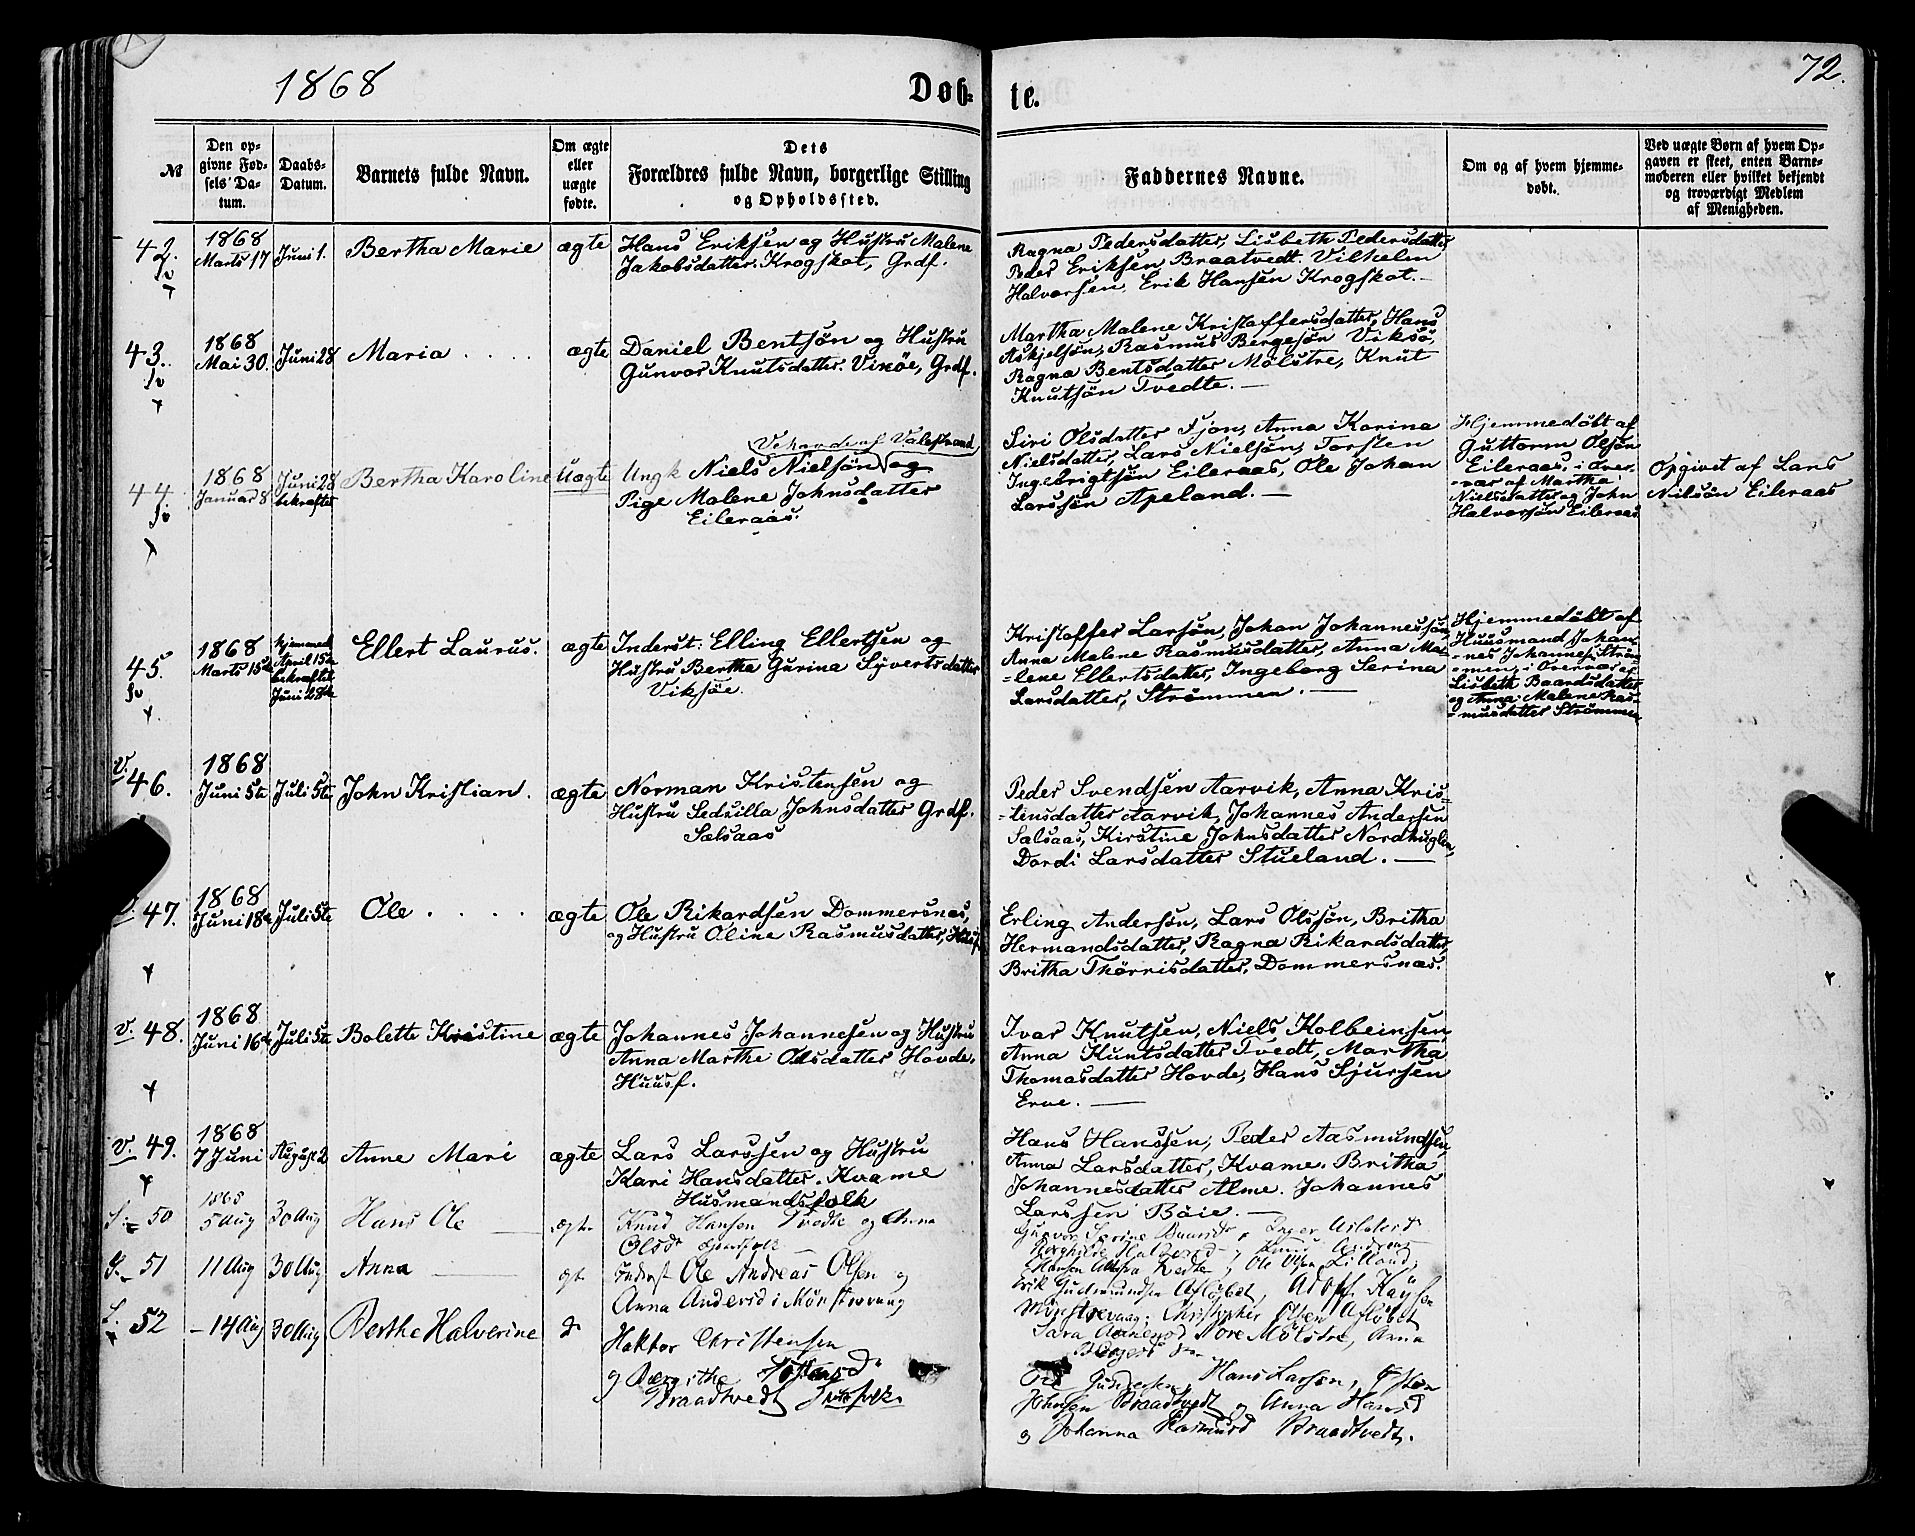 1868
Døb-
te.
72.
№
Den op-
givne Fød-
sels Da-
tum.
Daabs-
Datum.
Barnets fulde Navn.
Om ægte
eller
uægte
fødte.
Dets
Forældres fulde Navn, borgerlige Stilling
og Opholdssted.
Faddernes Navne.
Om og af hvem hjemme-
døbt.
Ved uægte Børn af hvem Op-
gaven er skeet, enten Barne-
moderen eller hvilket bekjendt
og troværdigt Medlem
af Menigheden.
42.
1868
Marts 17
Juni 1.
Bertha Marie
ægte
Hans Eriksen og Hustru Malene
Jakobsdatter. Krogskot, Grdf.
Ragna Pedersdatter, Lisbeth Pedersdatter
Peder Eriksen Braatvedt. Vilhelm
Halvorsen. Erik Hansen Krogskot.
43.
1868
Mai 30.
Juni 28
Maria
ægte
Daniel Bentsøn og Hustru
Gunvor Knutsdatter. Viksøe, Grdf.
Martha Malene Kristoffersdatter, Hans
Askjelsøn, Rasmus Bergesøn Viksø,
Ragna Bentsdatter Mølstre, Knut
Knutsøn Tvedte.
44
1868
Januar 8
Juni 28
bekræftet
Bertha Karoline
Uægte
af Valestrand
Ungk Niels Nielsøn og
Pige Malene Johnsdatter
Eileraas.
Siri Olsdatter Tjon, Anna Karina
Nielsdatter, Lars Nielsøn, Torsten
Ingebrigtsøn Eileraas, Ole Johan
Larssøn Apeland.
Hjemmedøbt af
Guttorm Olsøn
Eileraas, i Over-
-vær af Martha
Nielsdatter og John
Halvorsøn Eileraas
Opgivet af Lars
Nilsøn Eileraas
45.
1868
Marts 15de
hjemmed.
April 15de
bekræftet
Juni 28de
Ellert Laurus.
ægte
Inderst: Elling Ellertsen og
Hustru Bertha Gurina Syvertsdatter
Viksøe.
Kristoffer Larsøn, Johan Johannessøn,
Anna Malene Rasmusdatter, Anna Ma-
-lene Ellertsdatter, Ingeborg Serina
Larsdatter, Strømmen.
Hjemmedøbt af
Huusmand Johan-
-nes Johannes. Strøm-
-men, i Overvær af
Lisbeth Baardsdatter
og Anna Malene Ras-
-musdatter Strømmen
V.
46.
1868
Juni 5te
Juli 5te
John Kristian.
ægte
Norman Kristensøn og
Hustru Sedsilla Johnsdatter Grdf.
Sælsaas
Peder Svendsen Aarvik, Anna Kris-
-tensdatter Aarvik, Johannes Andersen
Sælsaas, Kirstine Johnsdatter Nordhuglen,
Dordi Larsdatter Stueland.
47.
1868
Juni 18de
Juli 5te
Ole
ægte
Ole Rikardsen Dommersnæs,
og Hustru Oline Rasmusdatter, Husf.
Erling Andersøn, Lars Olssøn, Britha
Hermandsdatter, Ragna Rikardsdatter,
Britha Thørrisdatter, Dommersnæs.
v.
48.
1868
Juni 16de
Juli 5te
Bolette Kristine
ægte
Johannes Johannesen og Hustru
Anna Marthe Olsdatter Hovde,
Huusf.
Ivar Knutsen, Niels Kolbeinsen,
Anna Kuntsdatter Tvedt, Martha
Thomasdatter Hovde, Hans Sjursen
Erve.
v.
49.
1868
7 Juni
August 2
Anne Mari
ægte
Lars Larssen og Hustru
Kari Hansdatter. Kvame
Husmandsfolk
Hans Hanssen, Peder Aasmundsen,
Anna Larsdatter, Kvame. Britha
Johannesdatter Alme. Johannes
Larssen Bøie.
50
1868
5 Aug
30 Aug
Hans Ole
ægte
Knud Hansen Tvedte og Anna
Olsd
51
11 Aug
30 Aug
Anna
gt
Inderst Ole Andreas Olsen og
Anna Andersd i Mønstrevaag
Erik Gudmundsen
Mønstrevaag. Christopher Olsen
52
14 Aug
30 Aug
Berthe Halverine
Haktor Christensen
Braadtvedt
Hans Larsen,
Johnsen Braadtvedt og Anna Hansd
og Johanna Rasmusd Braadtvedt.